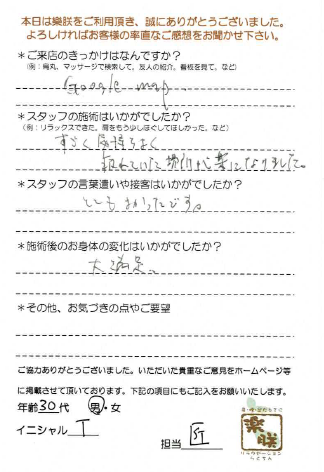 本日は樂咲をご利用頂き、誠にありがとうございました。
よろしければお客様の率直なご感想をお聞かせ下さい。
＊ご来店のきっかけはなんですか？
(例：烏丸、マッサージで検索して、友人の紹介、看板を見て、など)
Google map
＊スタッフの施術はいかがでしたか？
(例：リラックスできた、肩をもう少しほぐしてほしかった、など)
すごく気持ちよく
疲れていた場所が楽になりました。
＊スタッフの言葉遣いや接客はいかがでしたか？
とてもよかったです。
＊施術後のお身体の変化はいかがでしたか？
大満足
＊その他、お気づきの点やご要望
ご協力ありがとうございました。いただいた貴重なご意見をホームページ等
に掲載させて頂いております。下記の項目にもご記入をお願いいたします。
年齢30代 男・女
イニシャル T
担当
樂咲